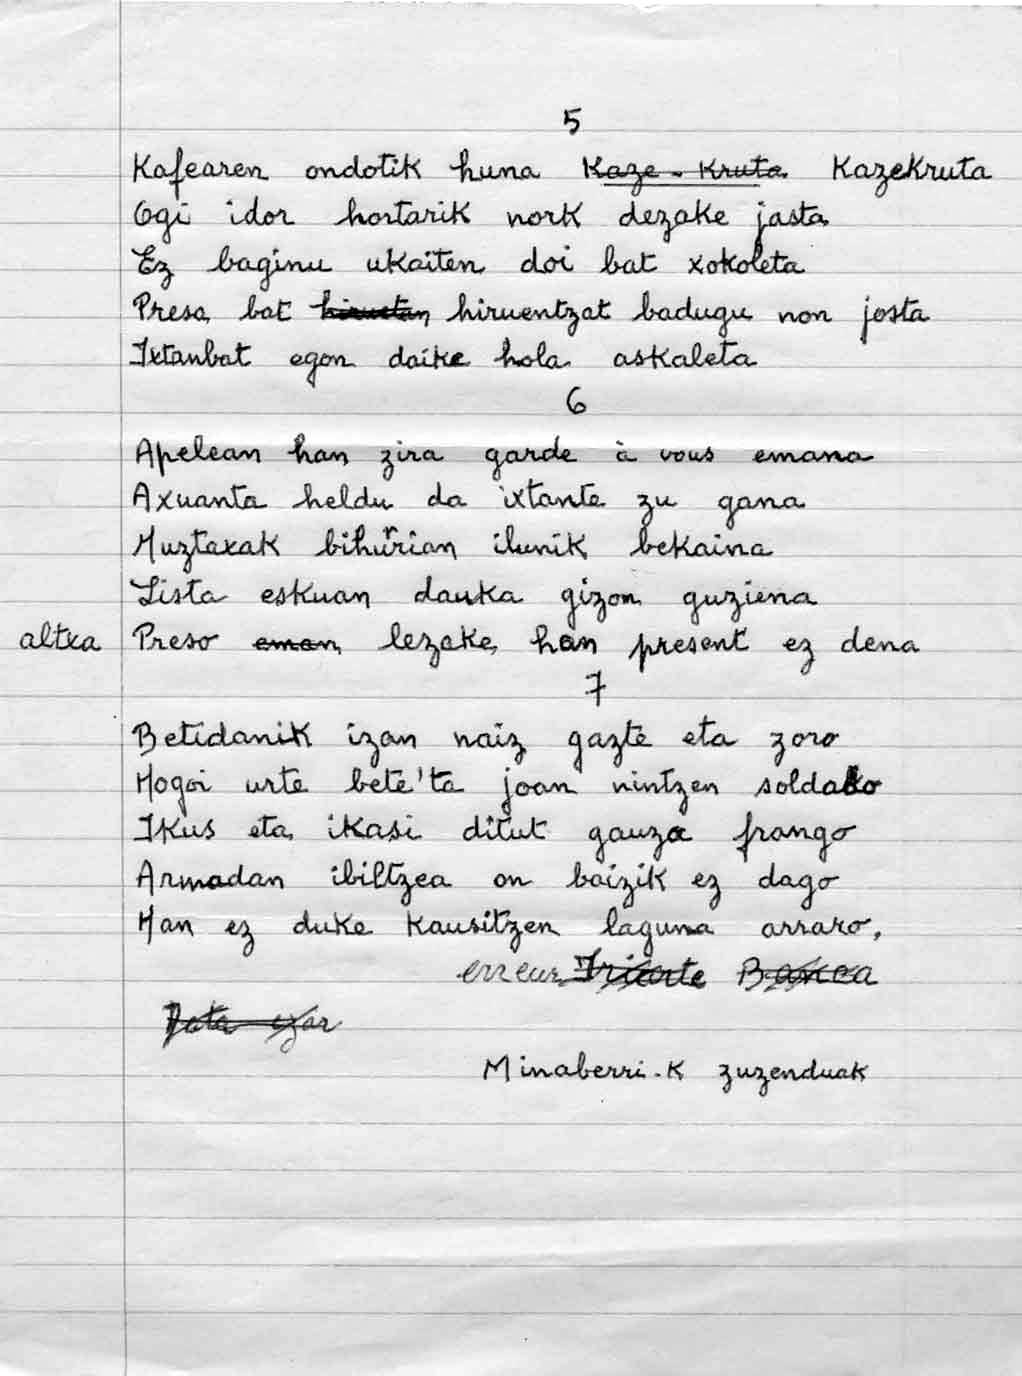 5
Kafearen ondotik huna Kaze-Kruta Kazekruta
Ogi idor hortarik nork dezake jasta
Ez baginu ukaiten doi bat xokoleta
Presa bat hiruetan hiruentzat badugu non josta
Ixtanbat egon daike hola askaleta
6
Apelean han zira garde à vous emana
Axuanta heldu da ixtante zu gana
Muztaxak bihurrian ilunik bekaina
Lista eskuan dauka gizon guziena
altxa Preso eman lezake han present ez dena
7
Betidanik izan naiz gazte eta zoro
Hogoi urte bete'ta joan nintzen soldado
Ikus eta ikasi ditut gauza frango
Armadan ibiltzea on baizik ez dago
Han ez duke kausitzen laguna arraro,
erreur Iriarte Banca
izar
Minaberri-k zuzenduak